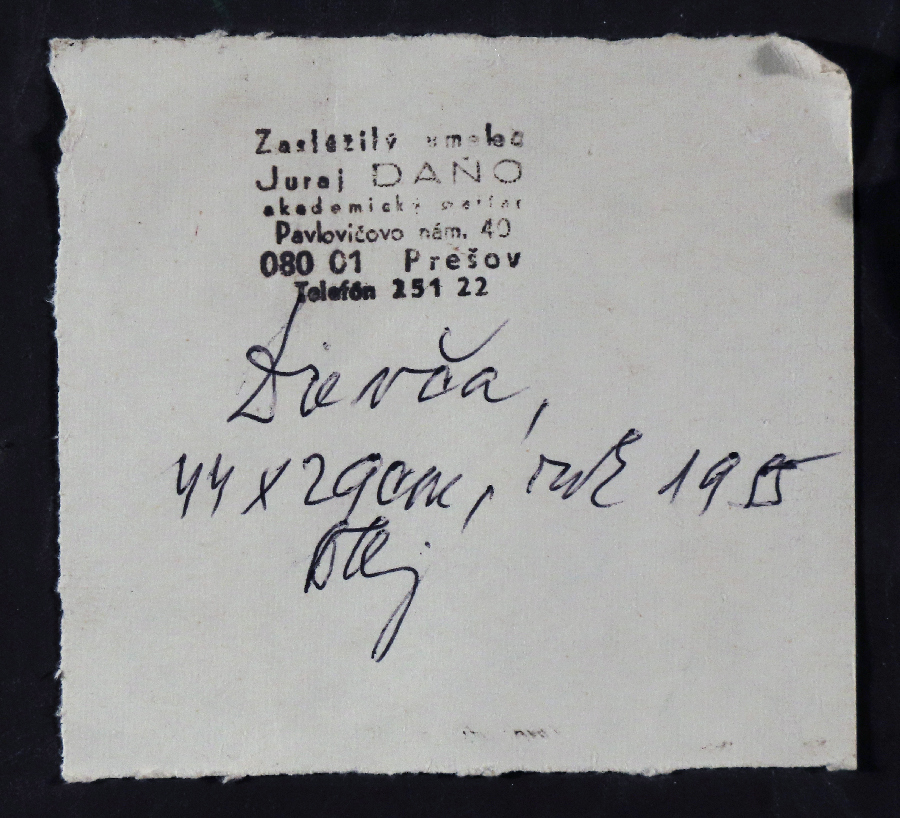 Zaslúžilý umelec
Juraj DAŇO
akademický maliar
Pavlovičovo nám. 40
080 01 Prešov
Telefón 251 22
Dievča,
44 x 29 cm, rok 1955
Olej